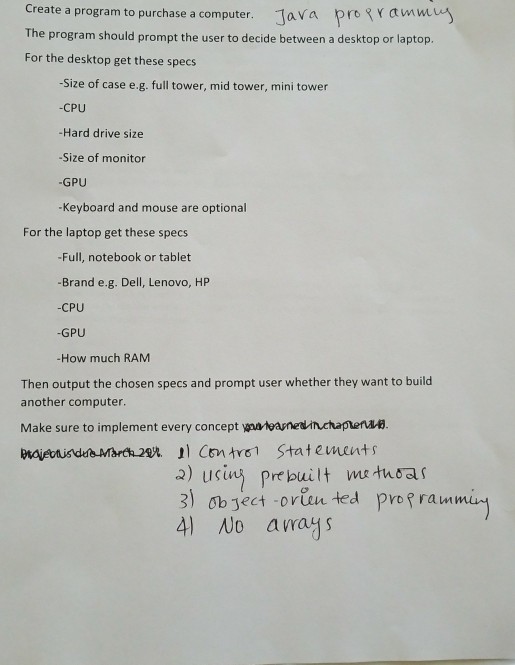 Create a program to purchase a computer. Java programming
The program should prompt the user to decide between a desktop or laptop.
For the desktop get these specs
-Size of case e.g. full tower, mid tower, mini tower
-CPU
-Hard drive size
-Size of monitor
-GPU
-Keyboard and mouse are optional
For the laptop get these specs
-Full, notebook or tablet
-Brand e.g. Dell, Lenovo, HP
-CPU
-GPU
-How much RAM
Then output the chosen specs and prompt user whether they want to build
another computer.
Make sure to implement every concept you learned in chapter
Project is due March 29th. 1) Control Statements
2) using prebuilt methods
3) object-oriented programming
4) No arrays